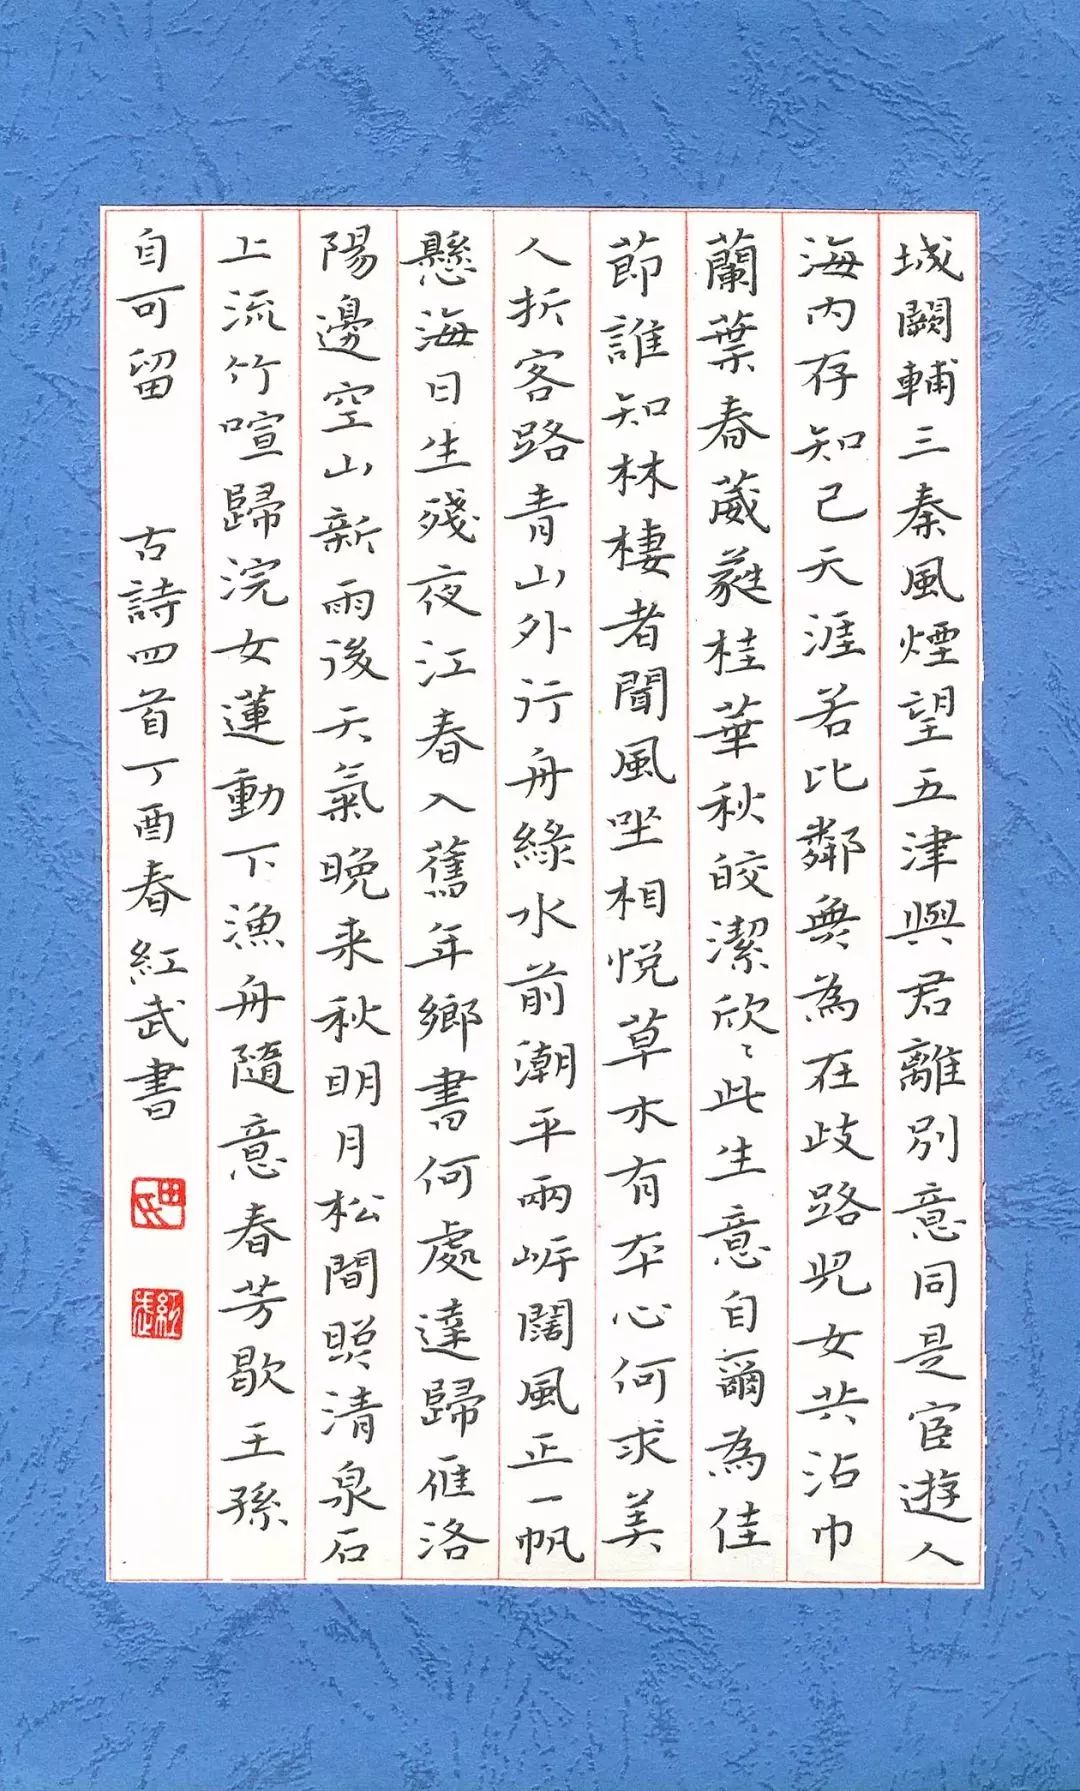 城闕輔三秦風煙望五津與君離別意同是宦遊人
海内存知己天涯若比鄰無為在歧路児女共沾巾
蘭葉春葳蕤桂華秋皎潔欣〻此生意自爾為佳
節誰知林棲者聞風坐相悦草木有本心何求美
人折客路青山外行舟緑水前潮平兩岸闊風正一帆
懸海日生殘夜江春入舊年鄉書何處達歸雁洛
陽邊空山新雨後天氣晚来秋明月松間照清泉石
上流竹喧歸浣女蓮動下漁舟隨意春芳歇王孫
自可留 古詩四首丁酉春紅武書
田氏
紅武